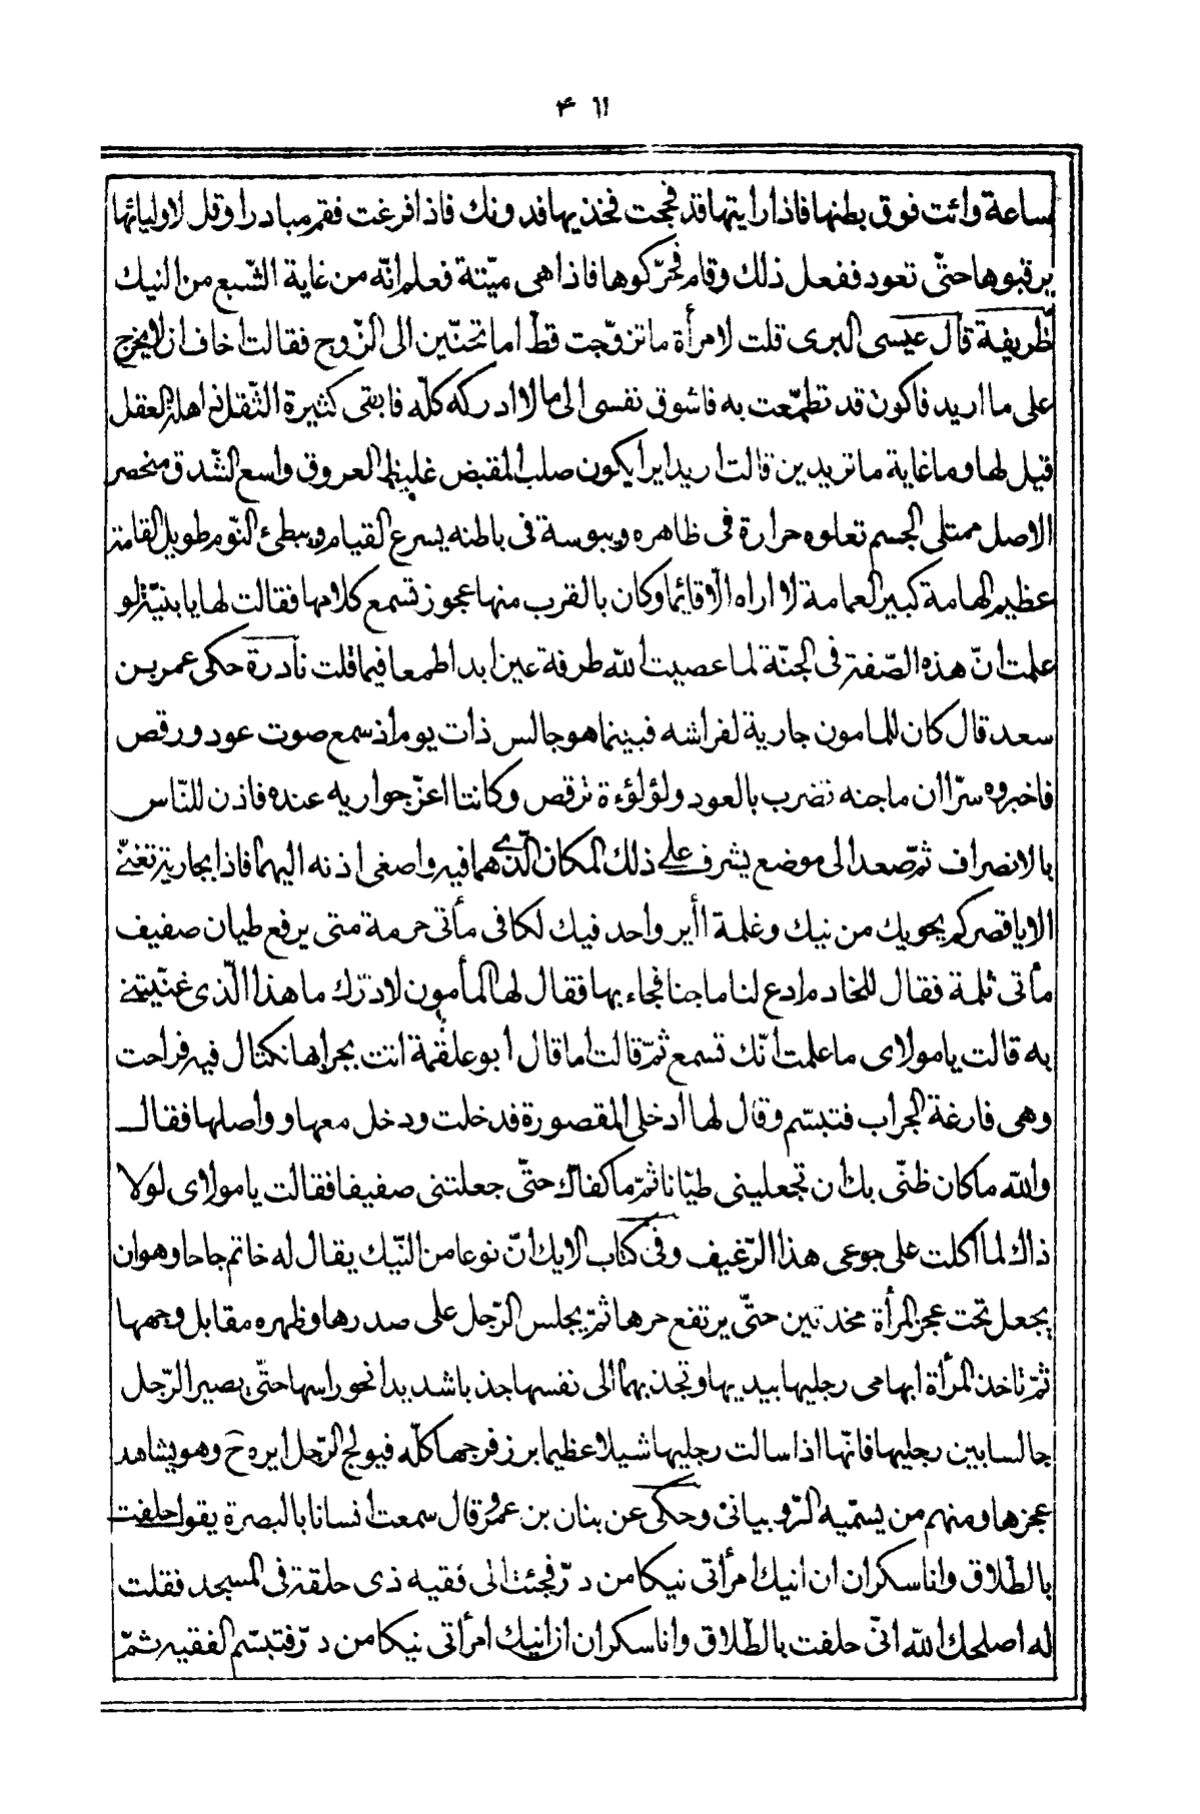 ۴ ۱۱
ساعة وانت فوق بطنها فاذا رايتها قد فججت فخذيها فدونك فاذا فرغت فقم مبادرا وقل لاوليائها
يرقبوها حتّى تعود ففعل ذلك وقام فحرّكوها فاذا هى ميّتة فعلم انّه من غاية الشّبع من النيك
ظريفة قال عيسى البرى قلت لامرأة ما تزوّجت قطّ اما تحنّين الى الزّوج فقالت اخاف ان لا يخرج
على ما اريد فاكون قد تطمّعت به فاشوق نفسى الى ما لا ادركه كلّه فابقى كثيرة الثّقل اهل العقل
قيل لها وما غاية ما تريدين قالت اريد ايرا يكون صلب المقبض غليظ العروق واسع الشّدق منحصر
الاصل ممتلى الجسم تعلوه حرارة فى ظاهره ويبوسة فى باطنه يسرع القيام ويبطئ النّوم طويل القامة
عظيم الهامة كبير العمامة لا اراه الّا قائما وكان بالقرب منها عجوز تسمع كلامها فقالت لها يا بنيّة لو
علمت انّ هذه الصّفة فى الجنّة لما عصيت اللّه طرفة عين ابدا طمعا فيما قلت نادرة حكى عمر بن
سعد قال كان للمامون جارية لفراشه فبينما هو جالس ذات يوم اذ سمع صوت عود ورقص
فاخبروه سرّا ان ماجنه تضرب بالعود ولؤلؤة ترقص وكانتا اعزّ جواريه عنده فاذن للنّاس
بالانصراف ثمّ صعد الى موضع يشرف على ذلك المكان الّذى هما فيه واصغى اذنه اليهما فاذا بجارية تغنّى
الا يا قصر كم يحويك من نيك وغلمة أأير واحد فيك لكافى مأتى حرمة متى يرفع طيان صفيف
مأتى ثلمة فقال للخادم ادع لنا ماجنا فجاء بها فقال لها المأمون لا درّك ما هذا الّذى غنّيتنى
به قالت يا مولاى ما علمت انّك تسمع ثمّ قالت اما قال ابو علقمة اتت بجرابها نكتال فيه فراحت
وهى فارغة الجراب فتبسّم وقال لها ادخلى المقصورة فدخلت ودخل معها وواصلها فقالـ
واللّه ما كان ظنّى بك ان تجعلينى طيّانا ثمّ ما كفاك حتّى جعلتنى صفيفا فقالت يا مولاى لولا
ذاك لما اكلت على جوعى هذا الرّغيف وفى كتاب الايك انّ نوعا من النّيك يقال له خاتم جاحا وهو ان
يجعل تحت عجز المرأة مخدتين حتّى يرتفع حرها ثمّ يجلس الرّجل على صدرها وظهره مقابل وجهها
ثمّ تاخذ المرأة ابهامى رجليها بيديها وتجذبهما الى نفسها جذبا شديدا نحو راسها حتّى يصير الرّجل
جالسا بين رجليها فانّها اذا سالت رجليها شيلا عظيما برز فرجها كلّه فيولج الرّجل ايره ح وهو يشاهد
عجزها ومنهم من يسمّيه الزّوبيانى وحكى عن بنان بن عمرو قال سمعت انسانا بالبصرة يقول حلفت
بالطّلاق وانا سكران ان انيك امرأتى نيكا من درّ فجئت الى فقيه ذى حلقة فى المسجد فقلت
له اصلحك اللّه انّى حلفت بالطّلاق وانا سكران ان انيك امرأتى نيكا من درّ فتبسّم الفقيه ثمّ